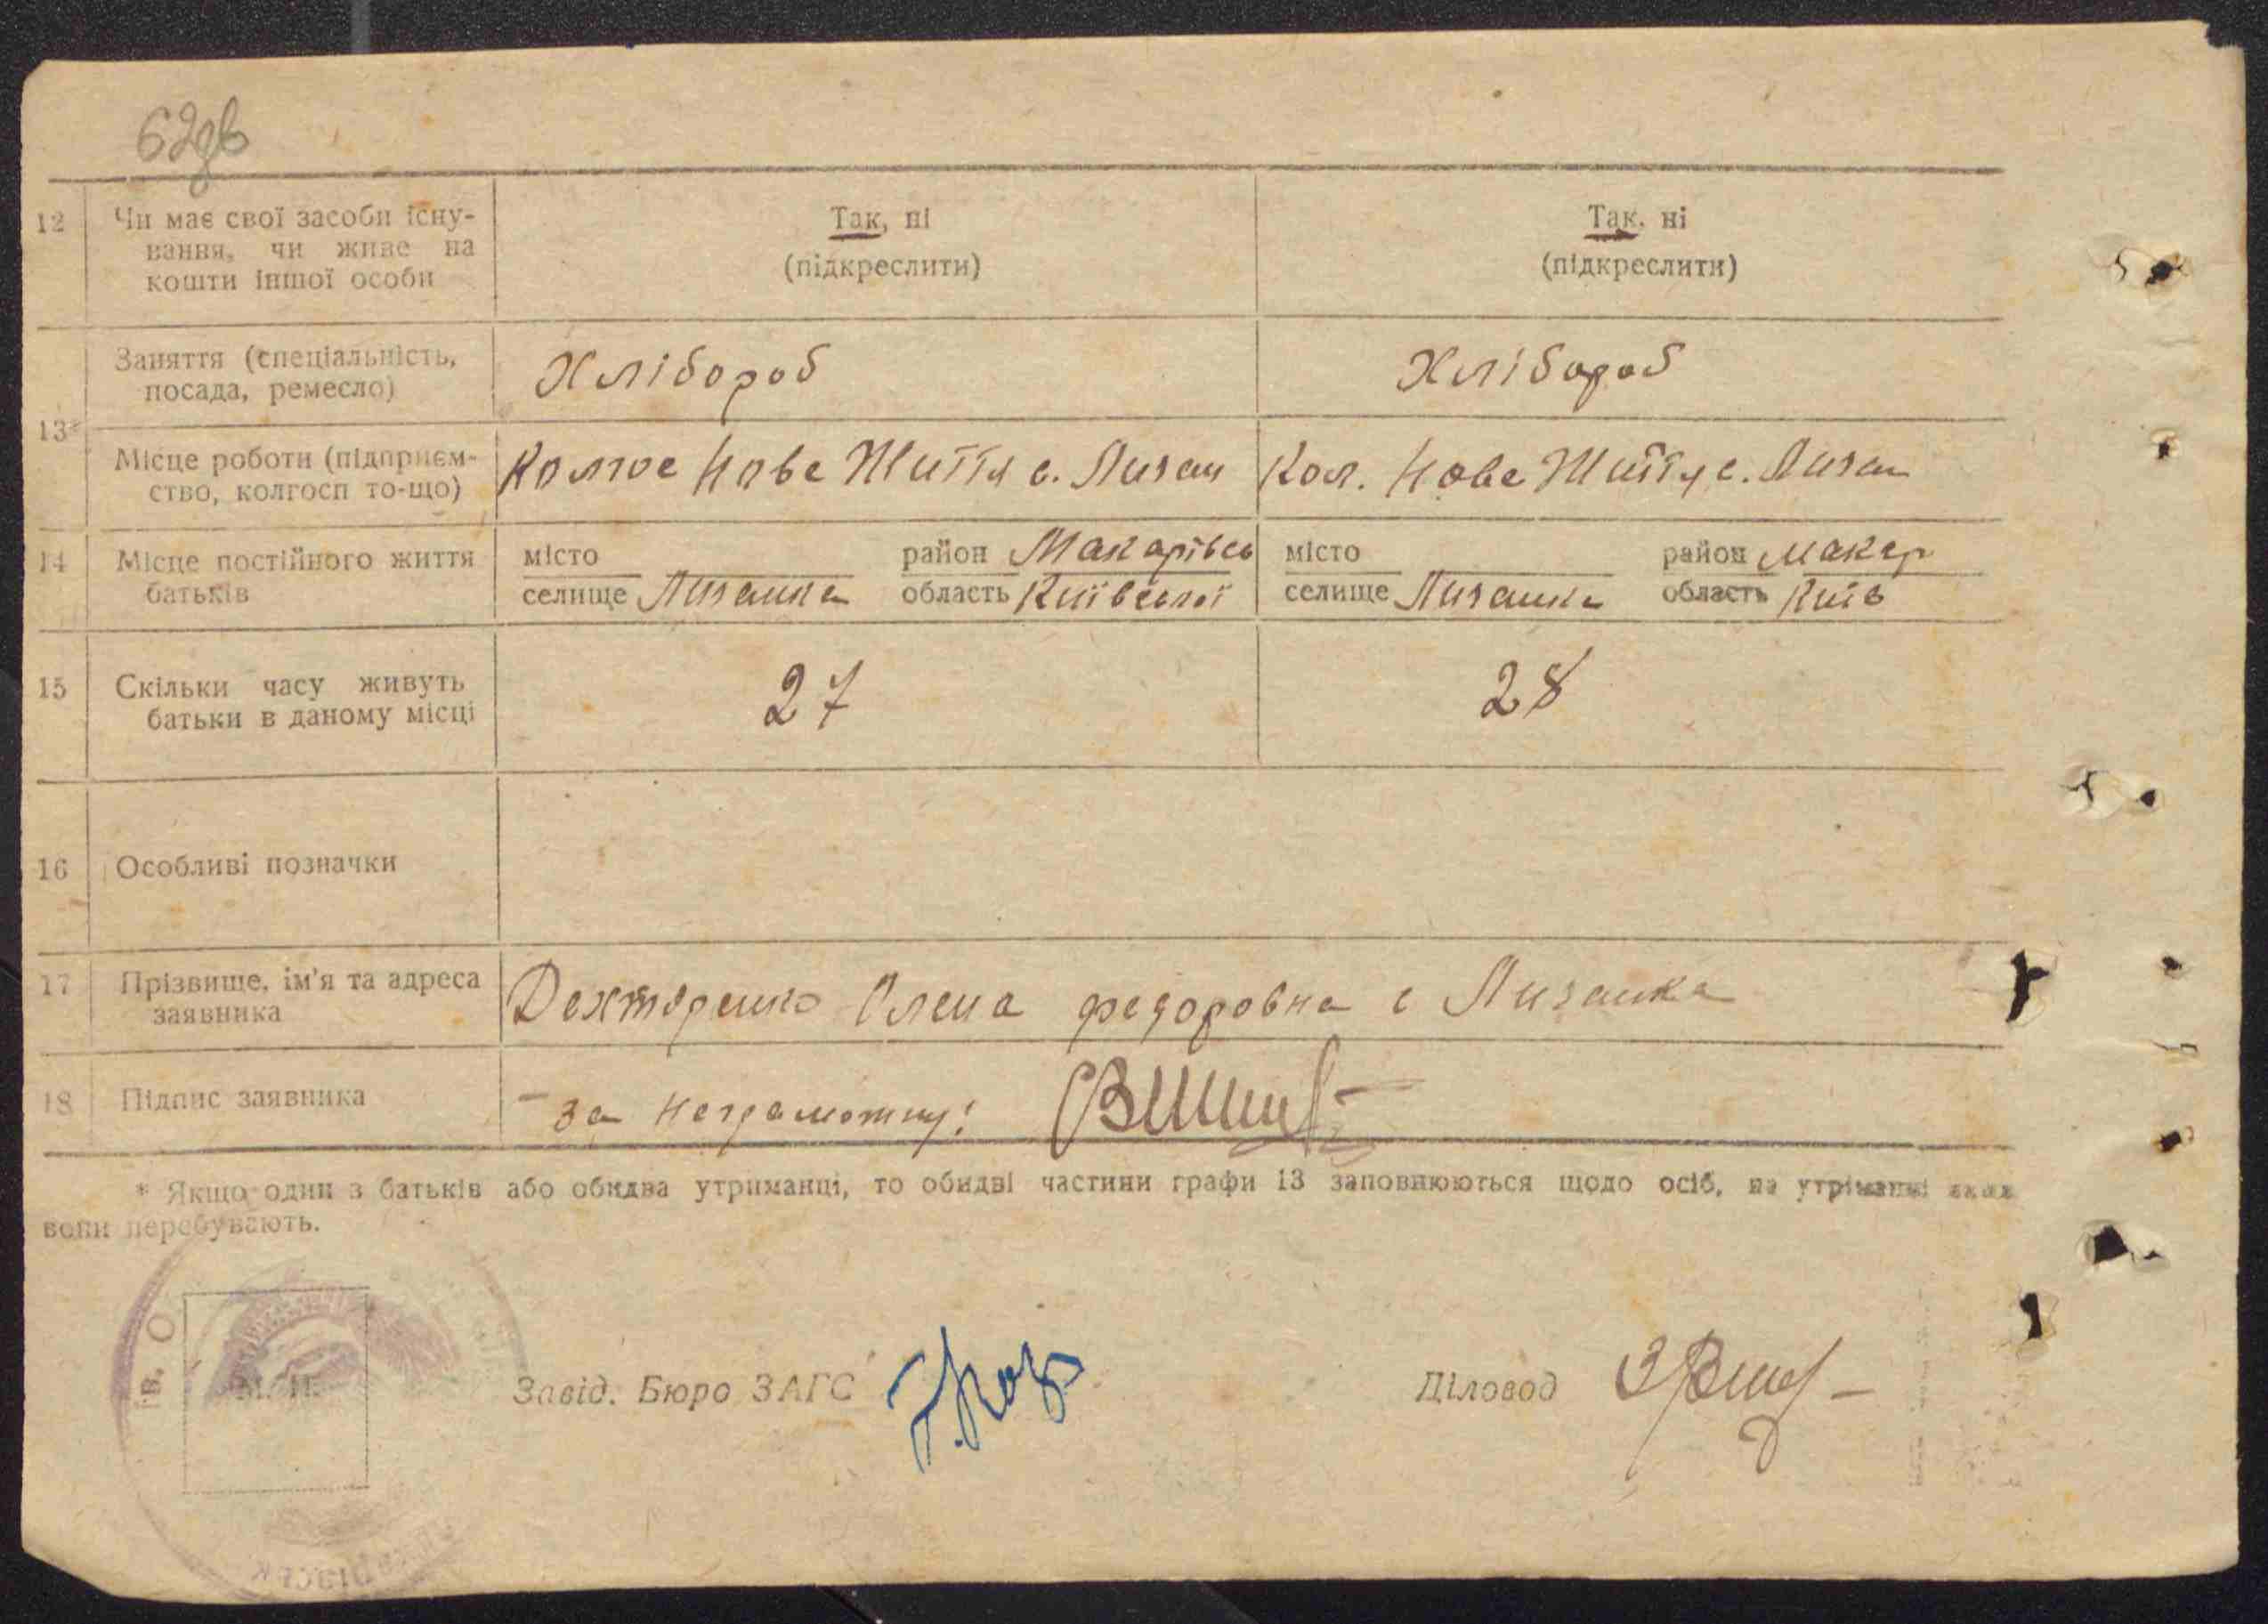 62зв
12 Чи має свої засоби існу-
вання, чи живе на
кошти іншої особи
Так, ні
(підкреслити)
Так, ні
(підкреслити)
13*
Заняття (спеціальність,
посада, ремесло)
Хлібороб
Хлібороб
Місце роботи (підприєм-
ство, колгосп то-що)
Колгос Нове Життя с. Лизан
Кол. Нове Життя с. Лизан
14 Місце постійного життя
батьків
місто район Макарівсь
селище Лизанка область Київської
місто район Макар
селище Лизанка область Київ
15 Скільки часу живуть
батьки в даному місці
27
28
16 Особливі позначки
17 Прізвище, ім'я та адреса
заявника
Дехторенко Олена федоровна с Лизанка
18 Підпис заявника
за неграмотну:
* Якщо один з батьків або обидва утриманці, то обидві частини графи 13 заповнюються щодо осіб, на утриманні яких
вони перебувають.
М. П.
Завід. Бюро ЗАГС
Діловод